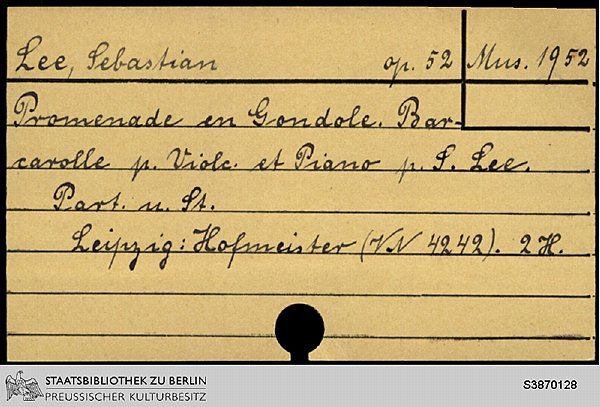 Lee, Sebastian op. 52 Mus. 1952
Promenade en Gondole. Bar-
carolle p. Violc. et Piano p. S. Lee.
Part. u. St.
Leipzig: Hofmeister (VN 4242). 2 H.
STAATSBIBLIOTHEK ZU BERLIN
PREUSSISCHER KULTURBESITZ
S3870128